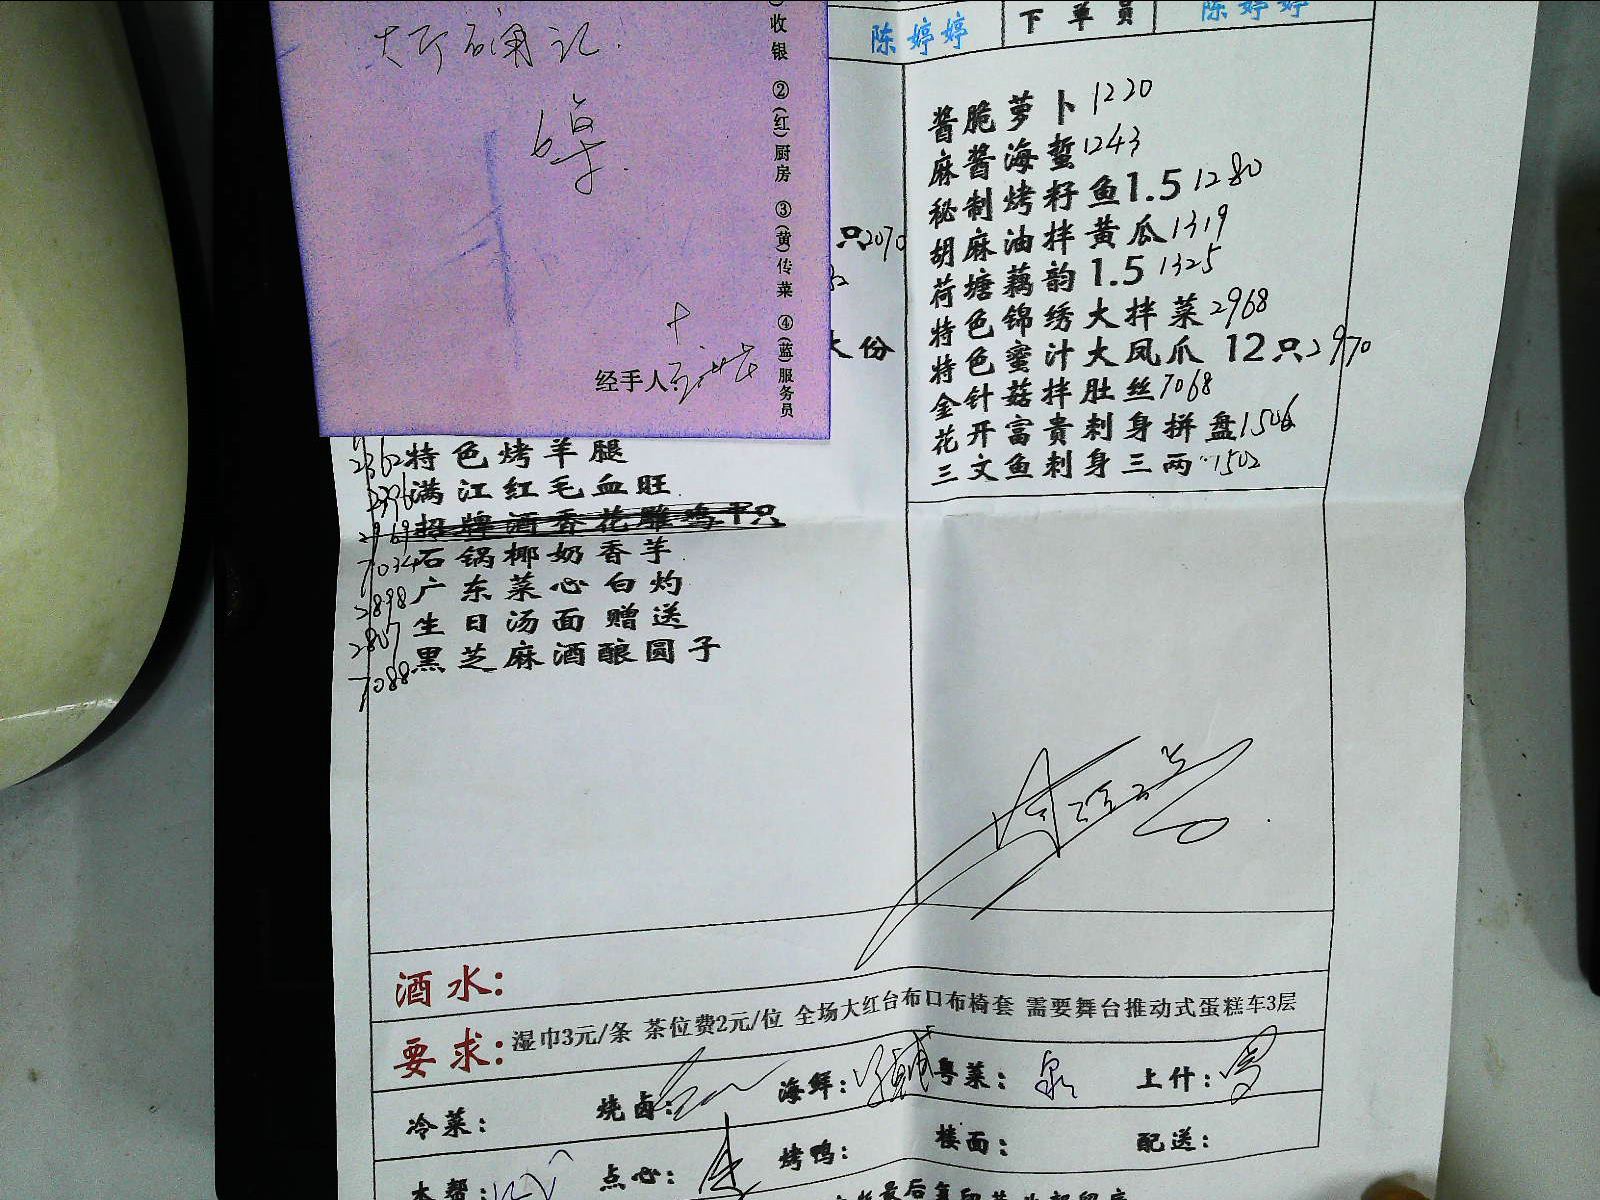 陈婷婷 下单员 陈婷婷
收银 ②(红)厨房 ③(黄)传菜 ④(蓝)服务员
经手人:
只2070
大份
2362特色烤羊腿
2396满江红毛血旺
2969招牌酒香花雕鸡半只
7034石锅椰奶香芋
2898广东菜心白灼
2807生日汤面赠送
7088黑芝麻酒酿圆子
酱脆萝卜1220
麻酱海蜇1243
秘制烤籽鱼1.5 1280
胡麻油拌黄瓜1319
荷塘藕韵1.5 1325
特色锦绣大拌菜2968
特色蜜汁大凤爪 12只2970
金针菇拌肚丝7068
花开富贵刺身拼盘1506
三文鱼刺身三两1502
酒水:
要求:湿巾3元/条 茶位费2元/位 全场大红台布口布椅套 需要舞台推动式蛋糕车3层
冷菜: 烧卤: 海鲜: 粤菜: 上什:
本帮: 点心: 烤鸭: 楼面: 配送: